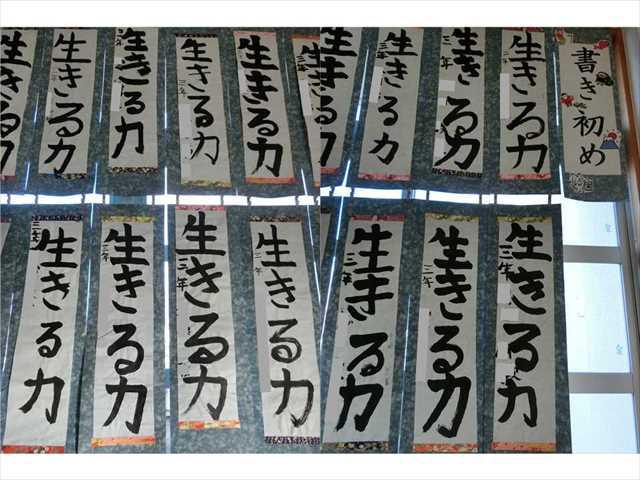 書き初め
生きる力
二年
生きる力
三年
生きる力
三年
生きる力
生きる力
三年
生きる力
生きる力
三年
生きる力
二年
生きる力
三年
生きる力
生きる力
三年
生きる力
二年
生きる力
三年
生きる力
二年
生きる力
三年
生きる力
二年
生きる力
三年